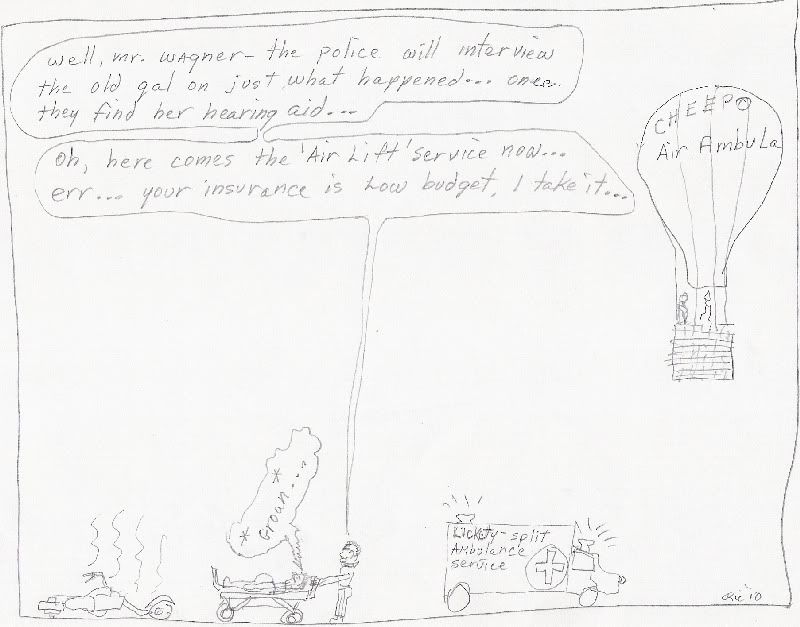 Well, Mr. Wagner- the police will interview
the old gal on just what happened... once
they find her hearing aid...
Oh, here comes the 'Air Lift' service now...
err... your insurance is Low budget, I take it...
CHEEPO
Air Ambula
* Groan... *
Lickety-split
Ambulance
service
'10